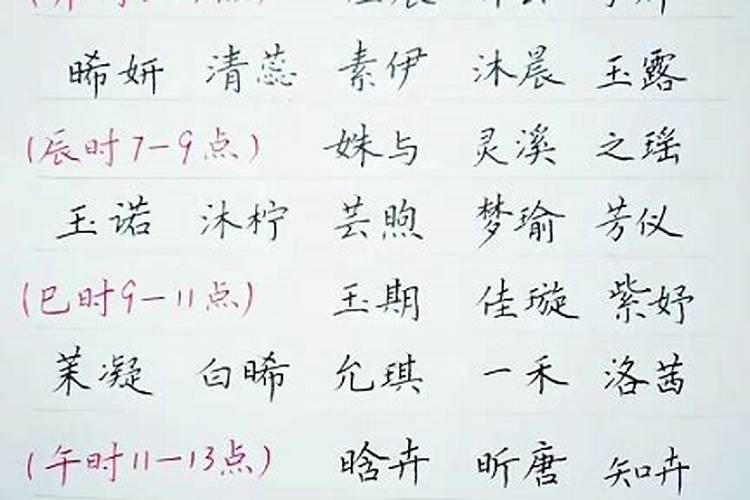 晞妍 清蕊 素伊 沐晨 玉露
(辰时7-9点) 姝与 灵溪 之瑶
玉诺 沐柠 芸煦 梦瑜 芳仪
(巳时9-11点) 玉期 佳璇 紫妤
茉凝 白晞 允琪 一禾 洛茜
(午时11-13点) 晗卉 昕唐 知卉